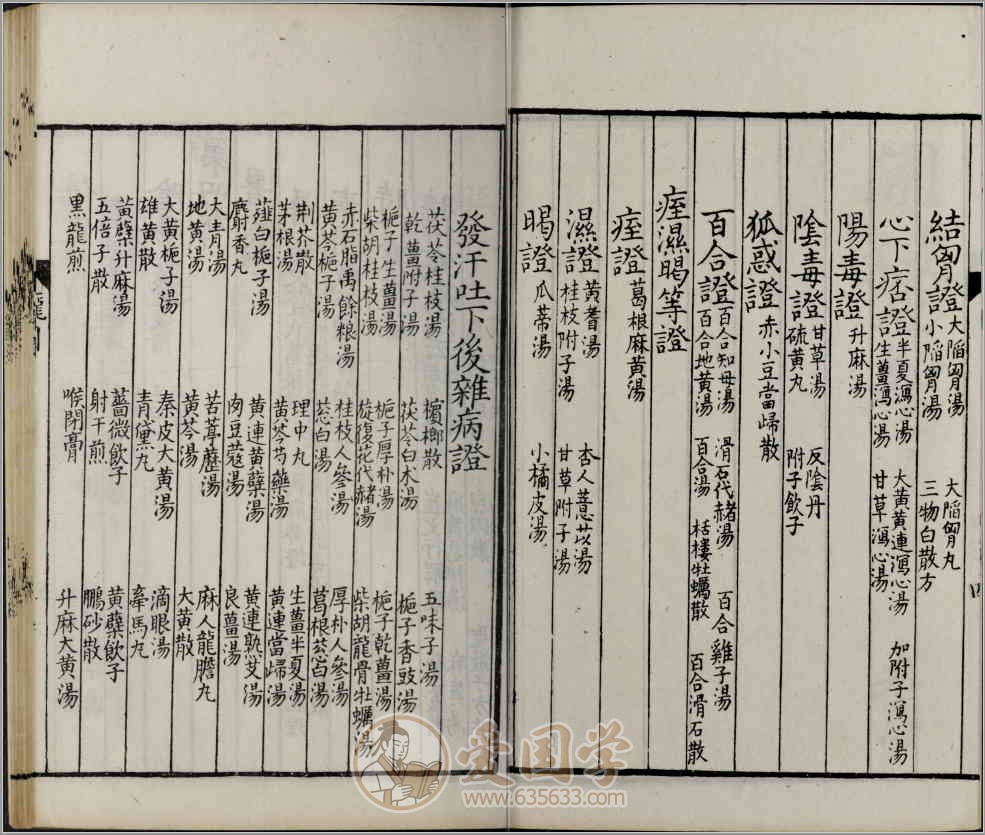 結胷證
大陷胷湯 大陷胷丸
小陷胷湯 三物白散方
心下痞證
半夏瀉心湯 大黃黃連瀉心湯 加附子瀉心湯
生薑瀉心湯 甘草瀉心湯
陽毒證 升麻湯
陰毒證
甘草湯 反陰丹
硫黃丸 附子飲子
狐惑證 赤小豆當歸散
百合證
百合知母湯 滑石代赭湯 百合雞子湯
百合地黃湯 百合湯 栝樓牡蠣散 百合滑石散
痓濕暍等證
痓證 葛根麻黃湯
濕證
黃耆湯 杏人薏苡湯
桂枝附子湯 甘草附子湯
暍證 瓜蒂湯 小橘皮湯
發汗吐下後雜病證
茯苓桂枝湯 檳榔散 五味子湯
乾薑附子湯 茯苓白朮湯 梔子香豉湯
梔子生薑湯 梔子厚朴湯 梔子乾薑湯
柴胡桂枝湯 旋復花代赭湯 柴胡龍骨牡蠣湯
赤石脂禹餘粮湯 桂枝人參湯 厚朴人參湯
黃芩梔子湯 葱白湯 葛根芎湯
荆芥散 理中丸 生薑半夏湯
茅根湯 黃芩芍藥湯 黃連當歸湯
薤白梔子湯 黃連黃蘗湯 黃連熟艾湯
麝香丸 肉豆蔻湯 良薑湯
大青湯 苦葶藶湯 麻人龍膽丸
地黃湯 黃芩湯 大黃散
大黃梔子湯 秦皮大黃湯 滴眼湯
雄黃散 青黛丸 牽馬丸
黃蘗升麻湯 薔薇飲子 黃蘗飲子
五倍子散 射干煎 鵬砂散
黑龍煎 喉閉膏 升麻大黃湯
四
爱国学
www.635633.com